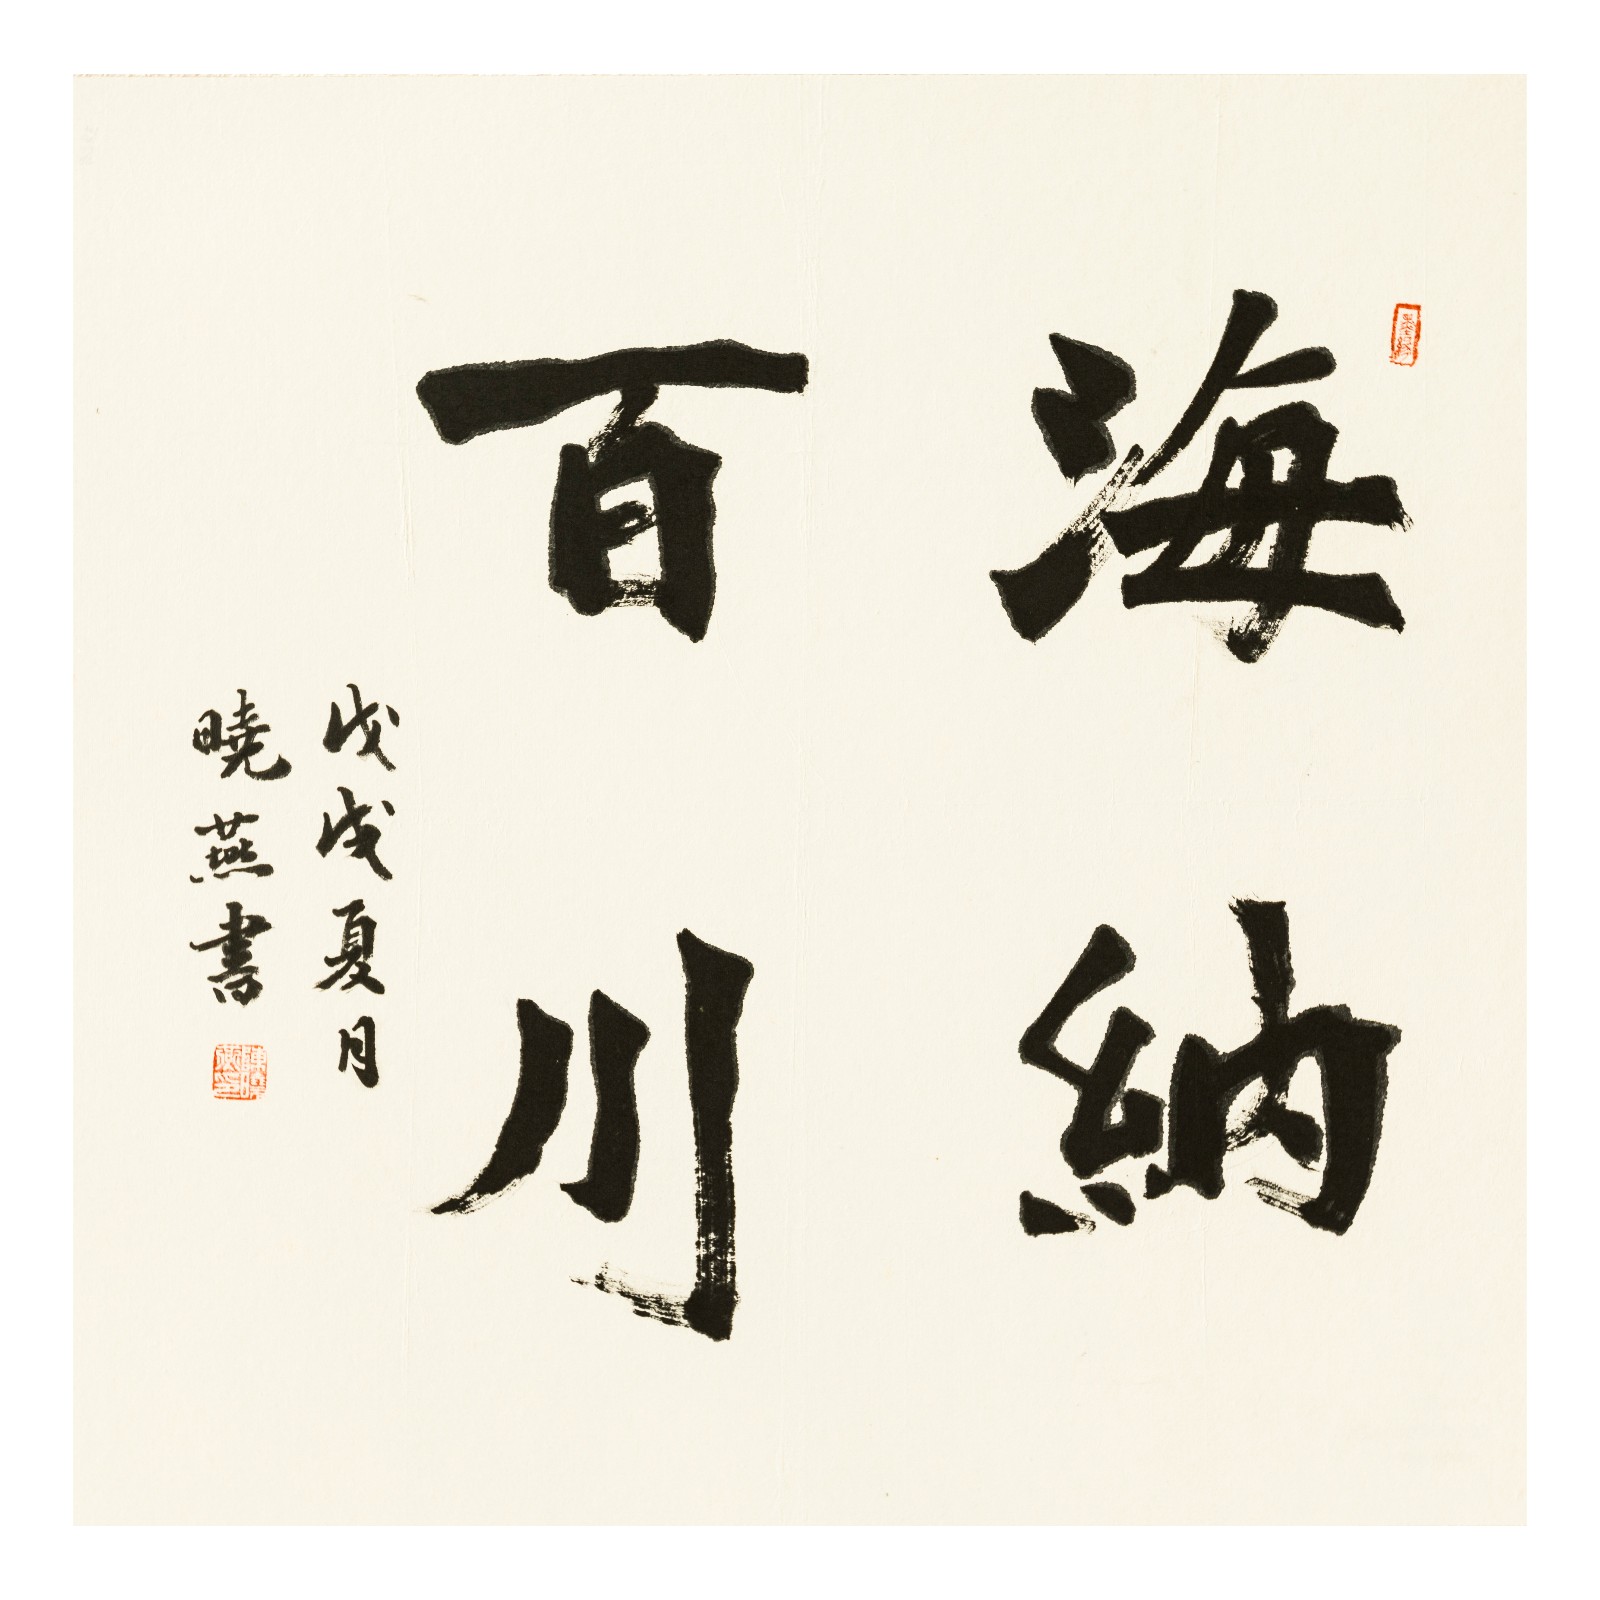 海納
百川
戊戌夏月
曉燕書